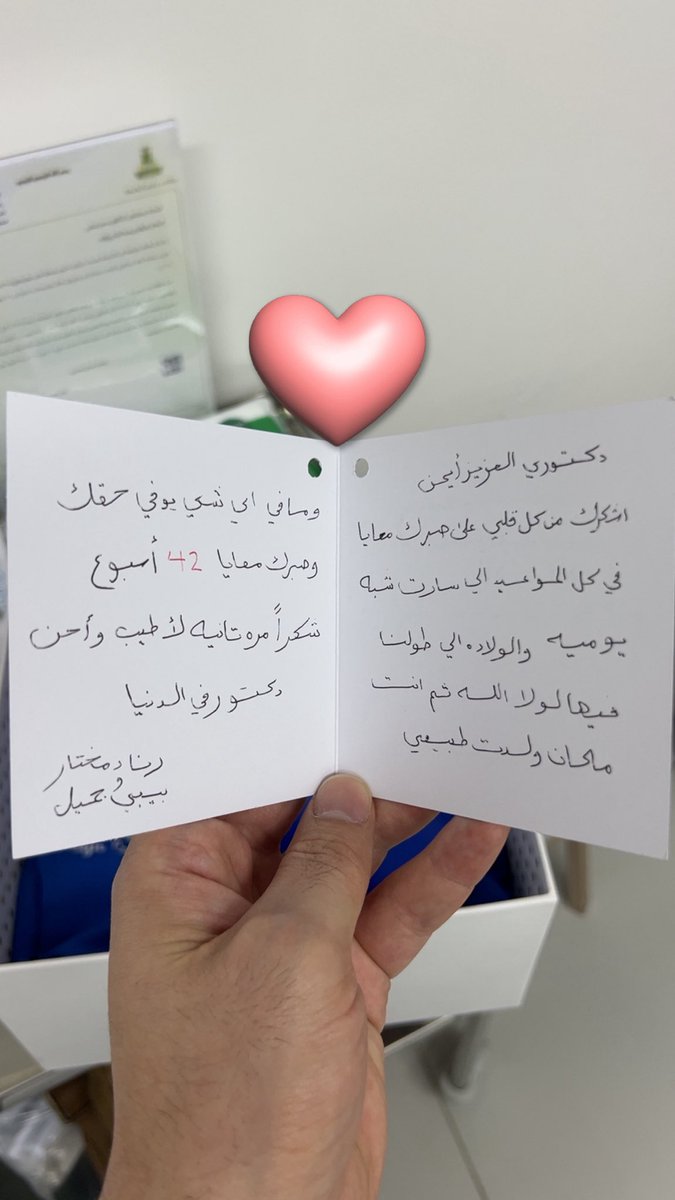 دكتوري العزيز أيمن
اشكرك من كل قلبي على صبرك معايا
في كل المواعيد الي سارت شبه
يوميه والولاده الي طولنا
فيها لولا الله ثم انت
ماكان ولدت طبيعي
ومافي اي شي يوفي حقك
وصبرك معايا 42 أسبوع
شكراً مره تانيه لأطيب وأحن
دكتور في الدنيا
رناد مختار
بيبي جميل